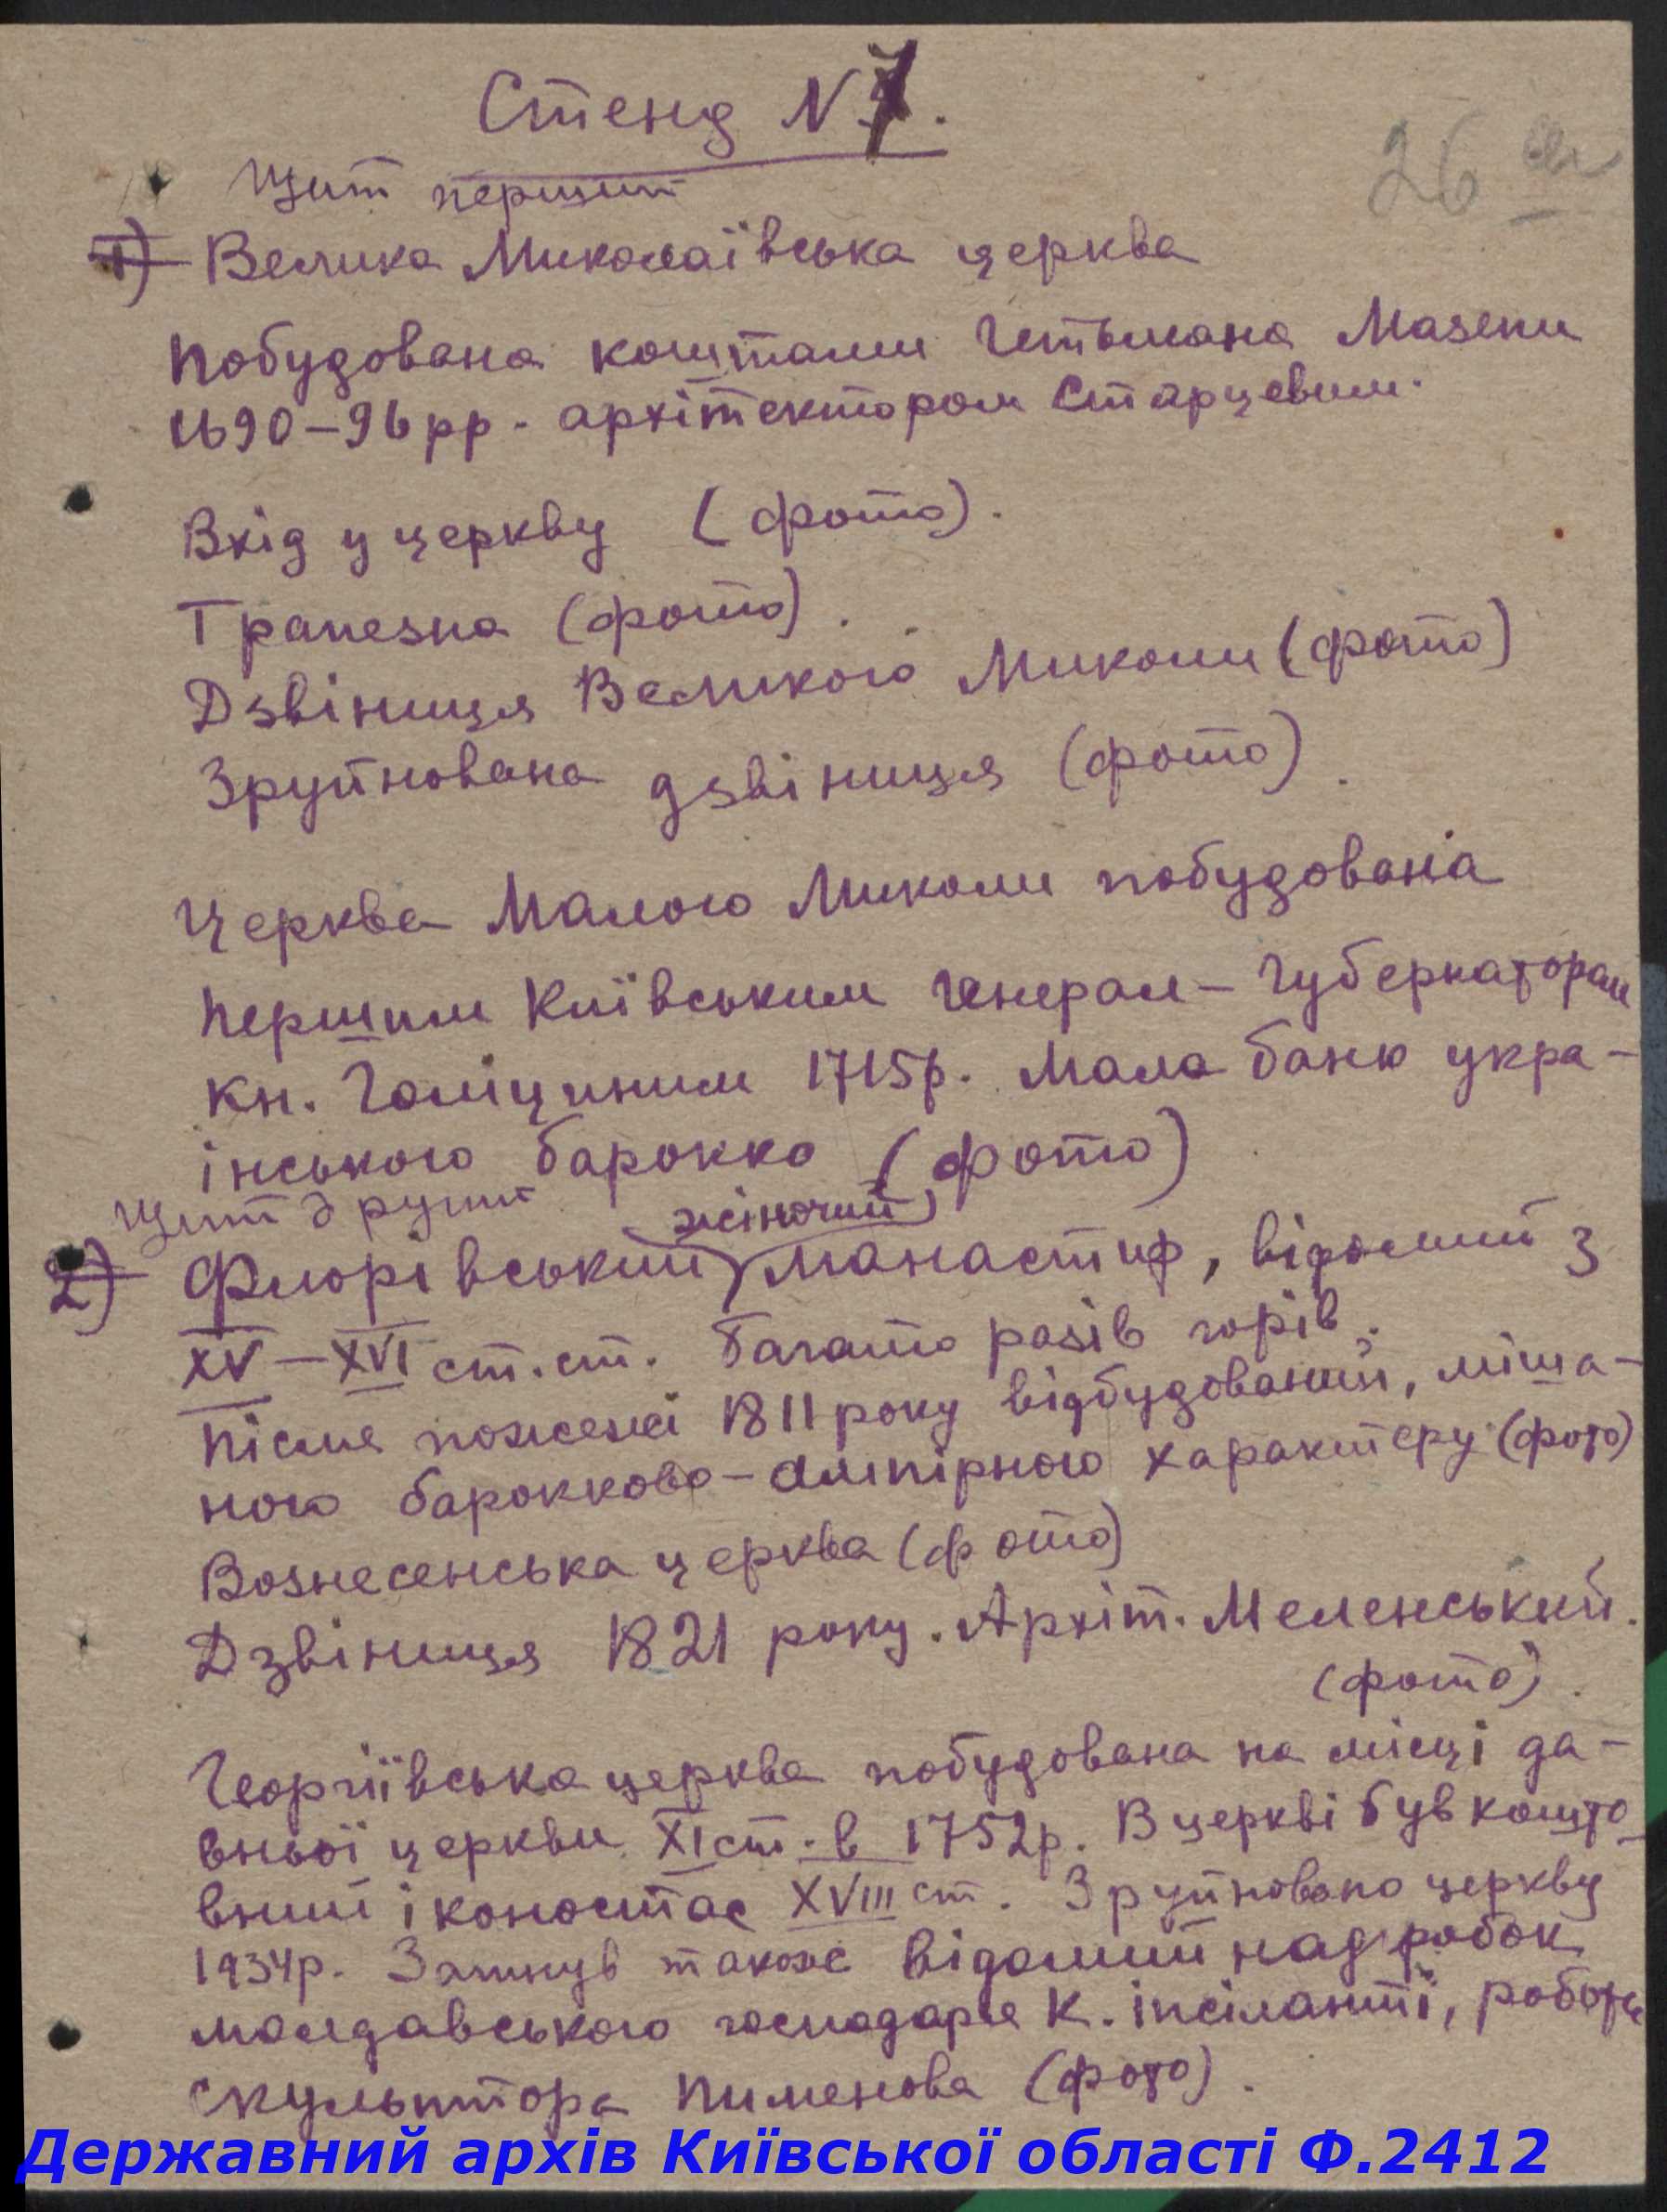 Стенд N 7.
26
Щит перший
1) Велика Миколаївська церква
Побудована коштами Гетьмана Мазепи
1690–96 рр. архітектором Старцевим.
Вхід у церкву (фото).
Трапезна (фото).
Дзвіниця Великого Миколи (фото)
Зруйнована дзвіниця (фото).
Церква Малого Миколи побудована
першим Київським Генерал–Губернатором
кн. Голіциним 1715р. Мала баню укра–
інського барокко (фото)
Щит другий
жіночий
2) Флорівський манастир, відомий з
XV–XVI ст.ст. Багато разів горів.
Після пожежі 1811 року відбудований, міша–
ного барокково–ампірного характеру (фото)
Вознесенська церква (фото)
Дзвіниця 1821 року. Архіт. Меленський.
(фото).
Георгіївська церква побудована на місці да–
вньої церкви XI ст. в 1752р. В церкві був кошто–
вний іконостас XVIII ст. Зруйновано церкву
1934р. Загинув також відомий надгробок
молдавського господаря К. іпсіланті, роботи
скульптора Пименова (фото).
Державний архів Київської області Ф.2412